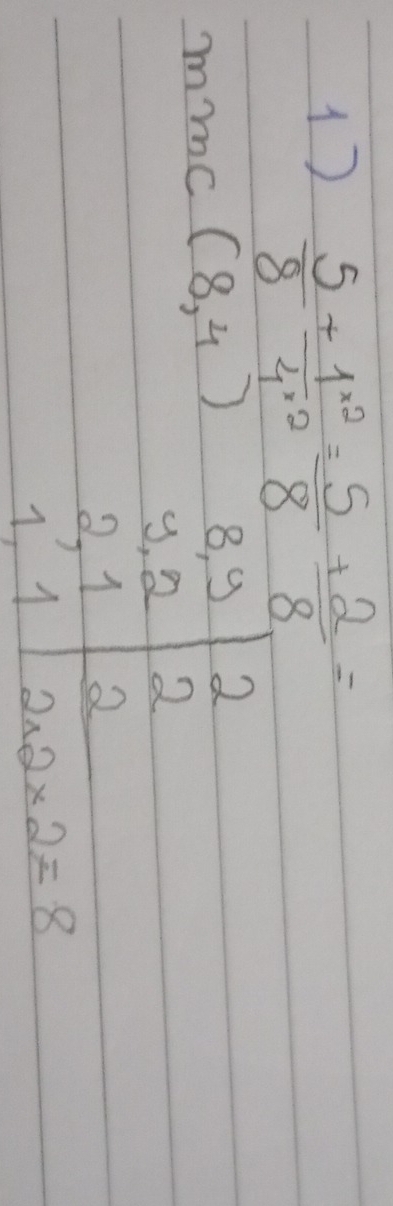 1) 5/8 + 1×2/4×2 = 5/8 + 2/8 =
mmc (8,4) 8,4 | 2
4,2 | 2
2,1 | 2
1,1 | 2×2×2=8